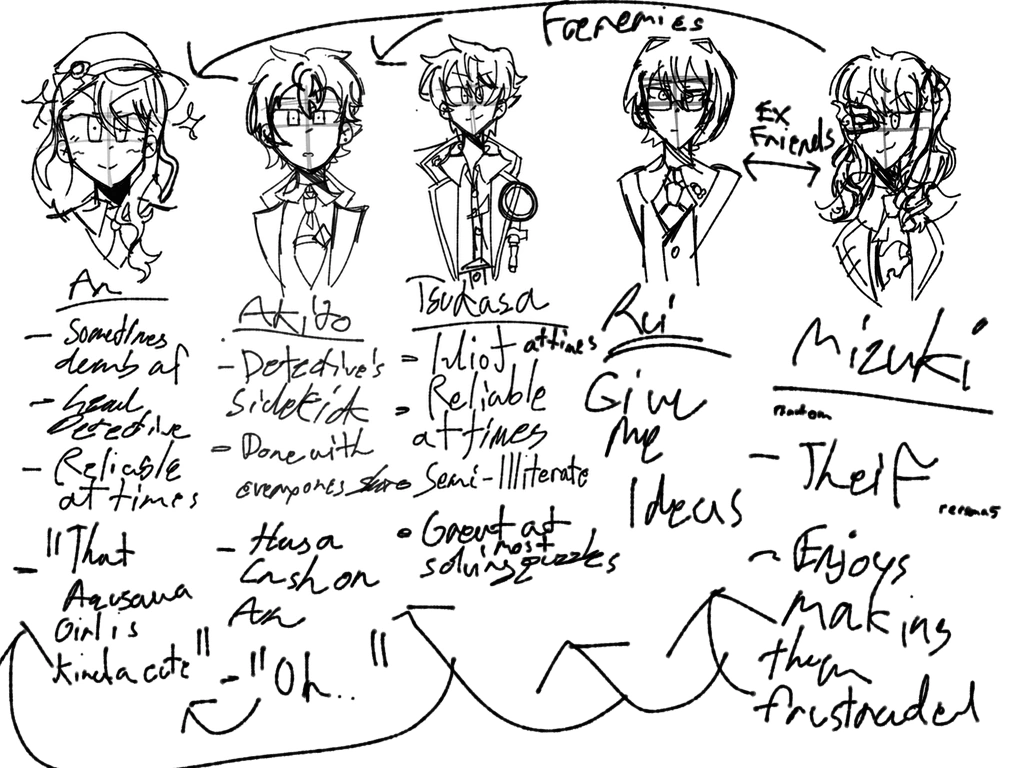 Frenemies
EX
Friends
An
- Sometimes
dumb af
- Lead
Detective
- Reliable
at times
- "That
Azusawa
Girl is
kinda cute"
Akito
- Detective's
Sidekick
- Done with
everyones
- Has a
Crush on
An
- "Oh.. "
Tsukasa
- Idiot at times
- Reliable
at times
- Semi-Illiterate
• Great at
solving most puzzles
Rui
Give
Me
Ideas
Mizuki
Random
- Theif
- Enjoys
making
them
frustraded